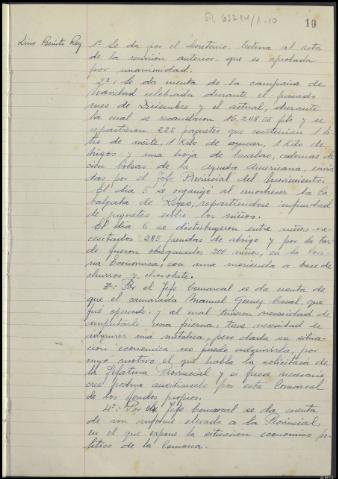 10
Lino Benito Rey
1º Se da por el Secretario lectura al acta
de la reunión anterior que es aprobada
por unanimidad.
2º: Se da cuenta de la campaña de
Navidad celebrada durante el pasado
mes de Diciembre y el actual, durante
la cual se recaudaron 16.248.05 pts y se
repartieron 228 paquetes que contenian 1 li-
tro de aceite, 1 Kilo de azucar, 1 Kilo de
higos y una hoja de, ademas de
cien bolsas de la Ayuda Americana, envia-
das por el Jefe Provincial del Movimiento.
El dia 5 se organizó al anochecer la Ca-
balgata de Reyes, repartiendose infinidad
de juguetes entre los niños.
El dia 6 se distribuyeron entre niños ne-
cesitados 283 prendas de abrigo y por la tar-
de fueron obsequiados 200 niños, en la Coci-
na Economica, con una merienda a base de
churros y chocolate.
3º: Por el Jefe Comarcal se da cuenta de
que el camarada Manuel, que
fue operado y al cual tuvieron necesidad de
amputarle una pierna, tiene necesidad de
adquirir una ortopedica, pero dada su situa-
ción economica no puede adquirirla, por
cuyo motivo el que habla ha solicitado de
la Jefatura Provincial y si fuera necesario
cree podria auxiliarsele por esta Comarcal
de los fondos propios.
4º: Por el Jefe Comarcal se da cuenta
de un informe elevado a la Provincial,
en el que expone la situacion economico po-
litica de la Comarca.